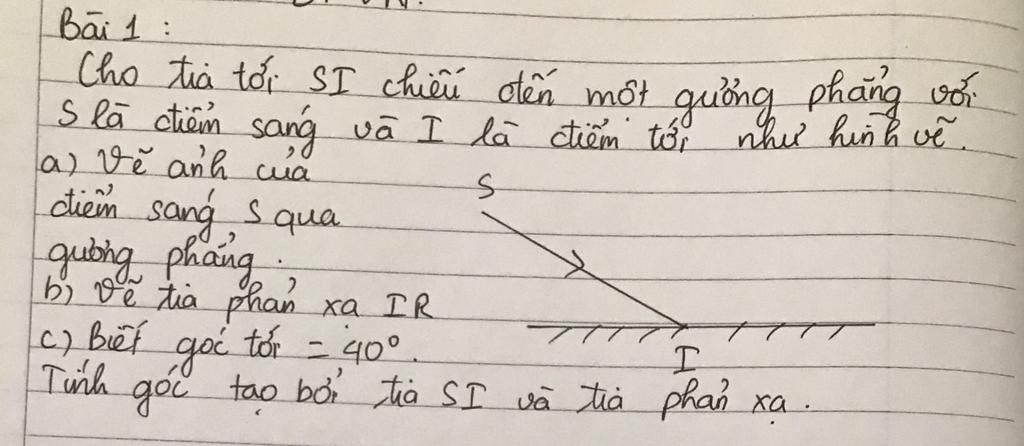 Bài 1 :
Cho tia tới SI chiếu đến một gương phẳng với
S là điểm sáng và I là điểm tới như hình vẽ.
a) Vẽ ảnh của
điểm sáng S qua
gương phẳng.
b) Vẽ tia phản xạ IR
c) Biết góc tới = 40°.
Tính góc tạo bởi tia SI và tia phản xạ.
S
I